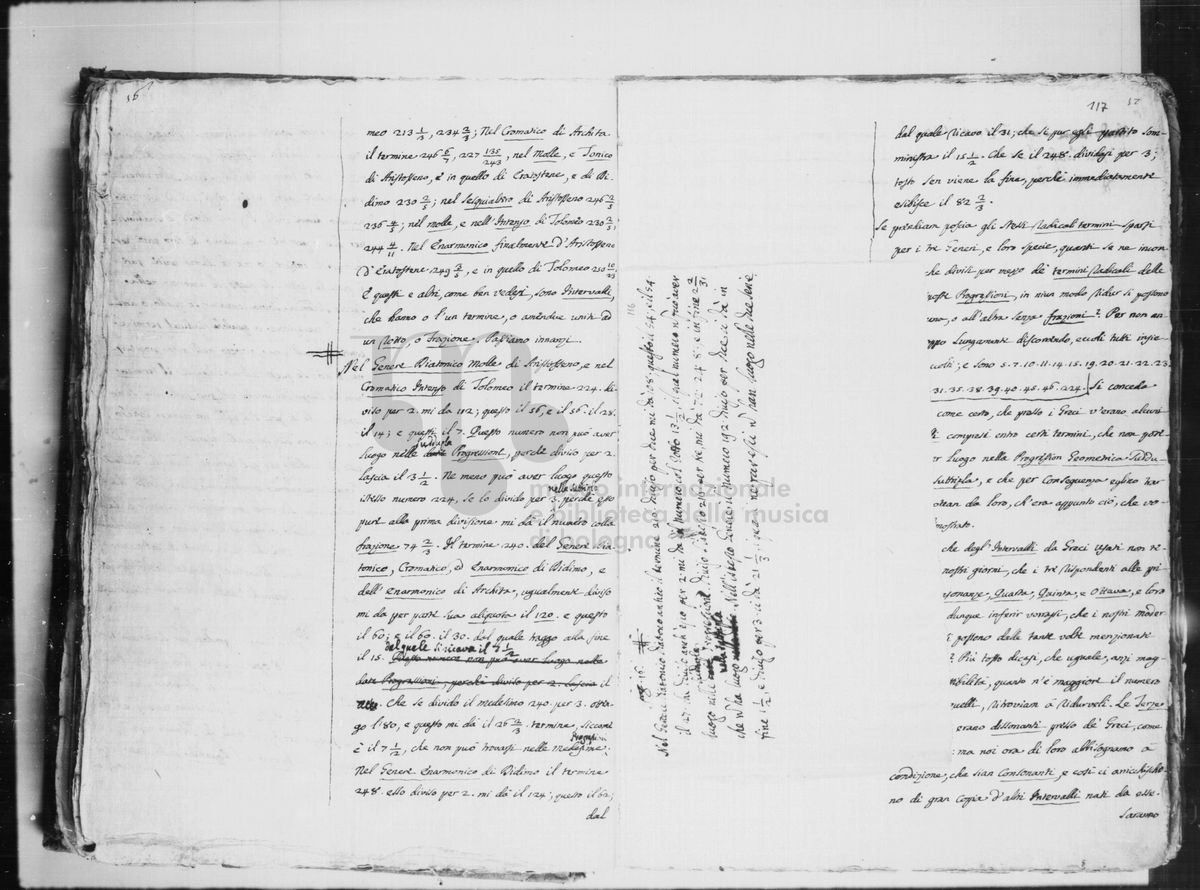 16
meo 213 1/3, 234 2/3; Nel Cromatico di Archita
il termine 246 6/7, 227 135/243, nel Molle, e Tonico
di Aristosseno, e in quello di Eratostene, e di Di-
dimo 230 2/5; nel Sesquialtro di Aristosseno 246 2/5
236 4/5; nel molle, e nell'Intenso di Tolomeo 230 2/5;
244 4/11. Nel Enarmonico finalmente d'Aristosseno
d'Eratostene 249 3/5, e in quello di Tolomeo 250 10/23
E questi e altri, come ben vedesi, sono Intervalli,
che hanno o l'un termine, o amendue uniti ad
un Rotto, o frazione. Passiamo innanzi.
Nel Genere Diatonico Molle di Aristosseno, e nel
Cromatico Intenso di Tolomeo il termine 224. di-
viso per 2. mi da 112; questo il 56, e il 56. il 28.
il 14; e questi il 7. Questo numero non può aver
luogo nelle date suddupla Progressioni, perchè diviso per 2.
lascia il 3 1/2. Ne meno può aver luogo questo
istesso numero 224, se lo divido per 3. nella suttripla perchè esso
pure alla prima divisione mi dà il numero colla
frazione 74 2/3. Il termine 240. del Genere Dia-
tonico, Cromatico, ed Enarmonico di Didimo, e
dell'Enarmonico di Archita, ugualmente diviso
mi da per parte sua aliquota il 120. e questo
il 60; e il 60. il 30. dal quale traggo alla fine
dal quale si ricava il 7 1/2
il 15. Questo numero non può aver luogo nelle
date Progressioni, perchè diviso per 2. lascia il
Che se divido il medesimo 240. per 3. otten-
go l'80, e questo mi dà il 26 2/3 termine, siccome
è il 7 1/2, che non può trovarsi nelle medesime.
Nel Genere Enarmonico di Didimo il termine
248. esso diviso per 2. mi dà il 124; questo il 62;
dal
116
pag. 16.
Nel Genere Diatonico antico il termine 216 diviso per due mi dà 108; questo il 54; e il 54
il 27. che diviso anch'esso per 2. mi da un numero col rotto 13 1/2 il qual numero non può aver
luogo nelle progressioni. Diviso l'istesso 216 per tre, me dà 72. 24. 8; e in fine 2 2/3
che non ha luogo nella suttripla Nell'istesso Genere il numero 192 diviso per due ci dà in
fine 1 1/2, e diviso per 3. ci dà 21 1/3
117
dal quale ricavo il 31; che se pur egli partito som-
ministra il 15 1/2. Che se il 248. dividasi per 3;
tosto sen viene la fine, perchè immediatamente
esibisce il 82 2/3.
Se prendiam poscia gli stessi radicali termini sparsi
per i tre Generi, e loro specie, quanti se ne incon-
che divisi per mezzo de' termini radicali delle
poste Progressioni, in niun modo ridur si possono
una, o all'altra senza frazioni? Per non an-
lungamente discorrendo, eccoli tutti insie-
colti; e sono 5. 7. 10. 11. 14. 15. 19. 20. 21. 22. 23.
31. 35. 38. 39. 40. 45. 46. 224. Si conceda
come certo, che presso i Greci v'erano alcuni
compresi entro certi termini, che non potè-
r luogo nella Progression Geometrica Suddu-
Suttripla, e che per conseguenza esclusi
da loro, n'era appunto ciò, che vo-
mostrato.
che degl'Intervalli da Greci usati non re-
nostri giorni, che i tre rispondenti alle pri-
sonanze, Quarta, Quinta, e Ottava, e loro
dunque inferir vorrassi, che i nostri moder-
i possono dalle tante volte menzionate
? Più tosto dicasi, che uguale, anzi mag-
ribilità, quanto n'è maggiore il numero
quelli, ritroviam a ridurveli. Le Terze
erano dissonanti presso de' Greci, come
ma noi ora di loro abbisogniamo a
condizione, che sian Consonanti, e così ci arricchischo-
no di gran coppia d'altri Intervalli nati da esse.
Saranno
museo internazionale
e biblioteca della musica
di bologna